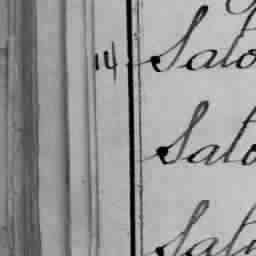 14 Salo
Salo
Sali